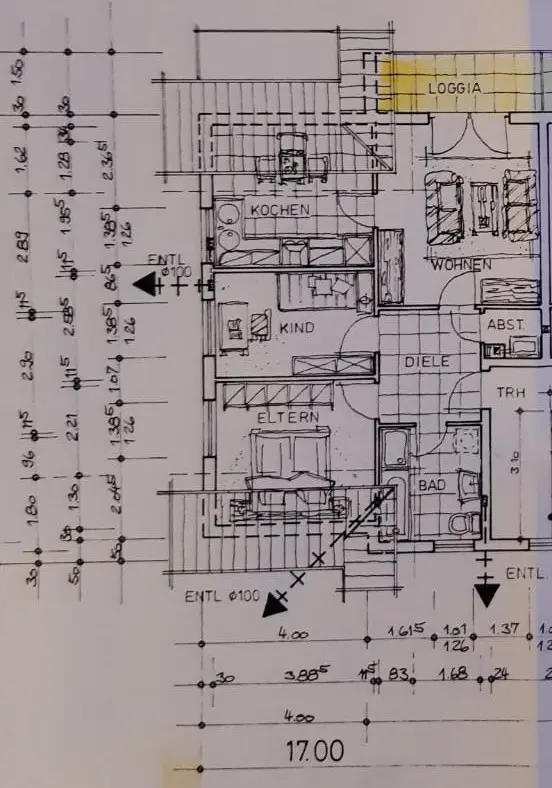 LOGGIA
KOCHEN
WOHNEN
ENTL
ø100
KIND
ABST.
DIELE
TRH
ELTERN
BAD
3.10
ENTL ø100
ENTL.
1.50
30
1.62
2.89
11⁵
2.90
11⁵
96
1.80
30
30
1.28
1.95⁵
11⁵
2.88⁵
11⁵
2.21
1.30
30
50
2.36⁵
1.38⁵
1.26
86⁵
1.38⁵
1.26
1.07
1.38⁵
1.26
2.04⁵
50
4.00 1.61⁵ 1.01 1.37
1.26
30 3.88⁵ 11⁵ 83 1.68 24
4.00
17.00